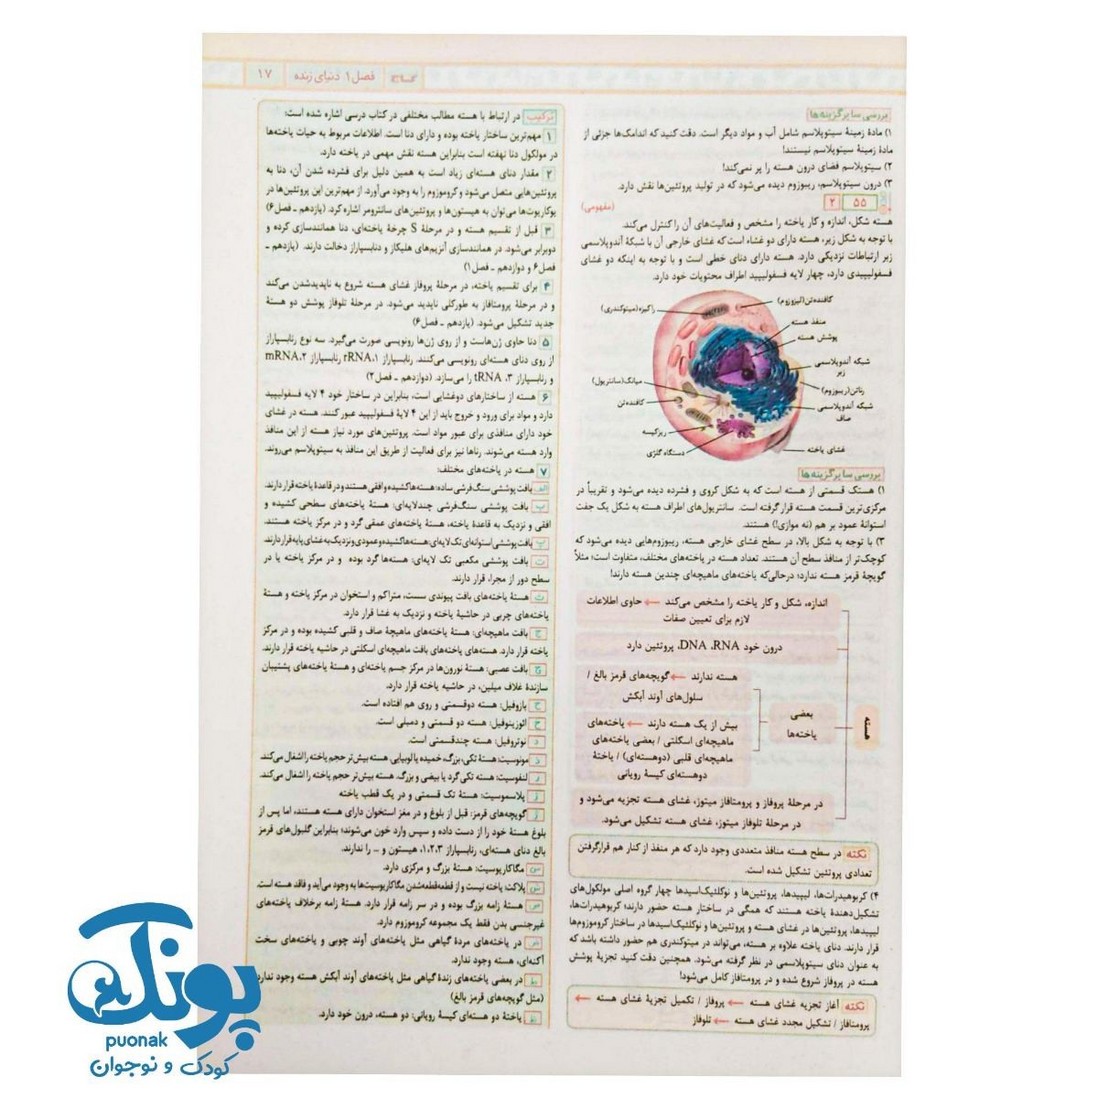 گاج فصل ۱ دنیای زنده ۱۷
بررسی سایر گزینه‌ها
۱) مادهٔ زمینهٔ سیتوپلاسم شامل آب و مواد دیگر است. دقت کنید که اندامک‌ها جزئی از
مادهٔ زمینهٔ سیتوپلاسم نیستند!
۲) سیتوپلاسم فضای درون هسته را پر نمی‌کند!
۳) درون سیتوپلاسم، ریبوزوم دیده می‌شود که در تولید پروتئین‌ها نقش دارد.
۵۵ ۲ (مفهومی)
هسته شکل، اندازه و کار یاخته را مشخص و فعالیت‌های آن را کنترل می‌کند.
با توجه به شکل زیر، هسته دارای دو غشاء است که غشای خارجی آن با شبکهٔ آندوپلاسمی
زبر ارتباطات نزدیکی دارد. هسته دارای دنای خطی است و با توجه به اینکه دو غشای
فسفولیپیدی دارد، چهار لایه فسفولیپید اطراف محتویات خود دارد.
کافنده‌تن (لیزوزوم)
راکیزه (میتوکندری)
منفذ هسته
پوشش هسته
شبکه آندوپلاسمی
زبر
میانک (سانتریول)
رناتن (ریبوزوم)
کافنده‌تن
شبکه آندوپلاسمی
صاف
ریزکیسه
غشای یاخته
دستگاه گلژی
بررسی سایر گزینه‌ها
۱) هستک قسمتی از هسته است که به شکل کروی و فشرده دیده می‌شود و تقریباً در
مرکزی‌ترین قسمت هسته قرار گرفته است. سانتریول‌های اطراف هسته به شکل یک جفت
استوانهٔ عمود بر هم (نه موازی!) هستند.
۳) با توجه به شکل بالا، در سطح غشای خارجی هسته، ریبوزوم‌هایی دیده می‌شود که
کوچک‌تر از منافذ سطح آن هستند. تعداد هسته در یاخته‌های مختلف، متفاوت است؛ مثلاً
گویچهٔ قرمز هسته ندارد؛ درحالی‌که یاخته‌های ماهیچه‌ای چندین هسته دارند!
اندازه، شکل و کار یاخته را مشخص می‌کند ← حاوی اطلاعات
لازم برای تعیین صفات
درون خود DNA ،RNA، پروتئین دارد
هسته ندارند ← گویچه‌های قرمز بالغ /
سلول‌های آوند آبکش
هسته
بعضی
یاخته‌ها
بیش از یک هسته دارند ← یاخته‌های
ماهیچه‌ای اسکلتی / بعضی یاخته‌های
ماهیچه‌ای قلبی (دوهسته‌ای) / یاختهٔ
دوهسته‌ای کیسهٔ رویانی
در مرحلهٔ پروفاز و پرومتافاز میتوز، غشای هسته تجزیه می‌شود و
در مرحلهٔ تلوفاز میتوز، غشای هسته تشکیل می‌شود.
نکته در سطح هسته منافذ متعددی وجود دارد که هر منفذ از کنار هم قرارگرفتن
تعدادی پروتئین تشکیل شده است.
۴) کربوهیدرات‌ها، لیپیدها، پروتئین‌ها و نوکلئیک‌اسیدها چهار گروه اصلی مولکول‌های
تشکیل‌دهندهٔ یاخته هستند که همگی در ساختار هسته حضور دارند؛ کربوهیدرات‌ها،
لیپیدها، پروتئین‌ها در غشای هسته و پروتئین‌ها و نوکلئیک‌اسیدها در ساختار کروموزوم‌ها
قرار دارند. دنای یاخته علاوه بر هسته، می‌تواند در میتوکندری هم حضور داشته باشد که
به عنوان دنای سیتوپلاسمی در نظر گرفته می‌شود. همچنین دقت کنید تجزیهٔ پوشش
هسته در پروفاز شروع شده و در پرومتافاز کامل می‌شود!
نکته آغاز تجزیه غشای هسته ← پروفاز / تکمیل تجزیهٔ غشای هسته ←
پرومتافاز / تشکیل مجدد غشای هسته ← تلوفاز
ترکیب در ارتباط با هسته مطالب مختلفی در کتاب درسی اشاره شده است:
۱ مهم‌ترین ساختار یاخته بوده و دارای دنا است. اطلاعات مربوط به حیات یاخته‌ها
در مولکول دنا نهفته است بنابراین هسته نقش مهمی در یاخته دارد.
۲ مقدار دنای هسته‌ای زیاد است به همین دلیل برای فشرده شدن آن، دنا به
پروتئین‌هایی متصل می‌شود و کروموزوم را به وجود می‌آورد. از مهم‌ترین این پروتئین‌ها در
یوکاریوت‌ها می‌توان به هیستون‌ها و پروتئین‌های سانترومر اشاره کرد. (یازدهم ـ فصل۶)
۳ قبل از تقسیم هسته و در مرحلهٔ S چرخهٔ یاخته‌ای، دنا همانندسازی کرده و
دوبرابر می‌شود. در همانندسازی آنزیم‌های هلیکاز و دنابسپاراز دخالت دارند. (یازدهم ـ
فصل ۶ و دوازدهم ـ فصل۱)
۴ برای تقسیم یاخته، در مرحلهٔ پروفاز غشای هسته شروع به ناپدیدشدن می‌کند
و در مرحلهٔ پرومتافاز به طورکلی ناپدید می‌شود. در مرحلهٔ تلوفاز پوشش دو هستهٔ
جدید تشکیل می‌شود. (یازدهم ـ فصل۶)
۵ دنا حاوی ژن‌هاست و از روی ژن‌ها رونویسی صورت می‌گیرد. سه نوع رنابسپاراز
از روی دنای هسته‌ای رونویسی می‌کنند. رنابسپاراز ۱، rRNA، رنابسپاراز ۲، mRNA
و رنابسپاراز ۳، tRNA را می‌سازد. (دوازدهم ـ فصل۲)
۶ هسته از ساختارهای دوغشایی است، بنابراین در ساختار خود ۴ لایه فسفولیپید
دارد و مواد برای ورود و خروج باید از این ۴ لایهٔ فسفولیپید عبور کنند. هسته در غشای
خود دارای منافذی برای عبور مواد است. پروتئین‌های مورد نیاز هسته از این منافذ
وارد هسته می‌شوند. رناها نیز برای فعالیت از طریق این منافذ به سیتوپلاسم می‌روند.
۷ هسته در یاخته‌های مختلف:
الف بافت پوششی سنگ‌فرشی ساده: هسته‌ها کشیده و افقی هستند و در قاعدهٔ یاخته قرار دارند.
ب بافت پوششی سنگ‌فرشی چندلایه‌ای: هستهٔ یاخته‌های سطحی کشیده و
افقی و نزدیک به قاعدهٔ یاخته، هستهٔ یاخته‌های عمقی گرد و در مرکز یاخته هستند.
پ بافت پوششی استوانه‌ای تک لایه‌ای: هسته‌ها کشیده و عمودی و نزدیک به غشای پایه قرار دارند.
ت بافت پوششی مکعبی تک لایه‌ای: هسته‌ها گرد بوده و در مرکز یاخته یا در
سطح دور از مجرا، قرار دارند.
ث هستهٔ یاخته‌های بافت پیوندی سست، متراکم و استخوان در مرکز یاخته و هستهٔ
یاخته‌های چربی در حاشیهٔ یاخته و نزدیک به غشا قرار دارد.
ج بافت ماهیچه‌ای: هستهٔ یاخته‌های ماهیچهٔ صاف و قلبی کشیده بوده و در مرکز
یاخته قرار دارد. هسته‌های یاخته‌های بافت ماهیچه‌ای اسکلتی در حاشیه یاخته قرار دارند.
چ بافت عصبی: هستهٔ نورون‌ها در مرکز جسم یاخته‌ای و هستهٔ یاخته‌های پشتیبان
سازندهٔ غلاف میلین، در حاشیه یاخته قرار دارد.
ح بازوفیل: هسته دوقسمتی و روی هم افتاده است.
خ ائوزینوفیل: هسته دو قسمتی و دمبلی است.
د نوتروفیل: هسته چندقسمتی است.
ذ مونوسیت: هستهٔ تکی، بزرگ، خمیده یا لوبیایی. هسته بیش‌تر حجم یاخته را اشغال می‌کند.
ر لنفوسیت: هسته تکی گرد یا بیضی و بزرگ. هسته بیش‌تر حجم یاخته را اشغال می‌کند.
ز پلاسموسیت: هستهٔ تک قسمتی و در یک قطب یاخته
ژ گویچه‌های قرمز: قبل از بلوغ و در مغز استخوان دارای هسته هستند، اما پس از
بلوغ هستهٔ خود را از دست داده و سپس وارد خون می‌شوند؛ بنابراین گلبول‌های قرمز
بالغ دنای هسته‌ای، رنابسپاراز ۱،۲،۳، هیستون و ... را ندارند.
س مگاکاریوسیت: هستهٔ بزرگ و مرکزی دارد.
ش پلاکت: یاخته نیست و از قطعه‌قطعه‌شدن مگاکاریوسیت‌ها به وجود می‌آید و فاقد هسته است.
ص هستهٔ زامه بزرگ بوده و در سر زامه قرار دارد. هستهٔ زامه برخلاف یاخته‌های
غیرجنسی بدن فقط یک مجموعه کروموزوم دارد.
ض در یاخته‌های مردهٔ گیاهی مثل یاخته‌های آوند چوبی و یاخته‌های سخت
آکنه‌ای، هسته وجود ندارد.
ط در بعضی یاخته‌های زندهٔ گیاهی مثل یاخته‌های آوند آبکش هسته وجود ندارد
(مثل گویچه‌های قرمز بالغ)
ظ یاختهٔ دو هسته‌ای کیسهٔ رویانی: دو هسته، درون خود دارد.
پونک
puonak
کودک و نوجوان